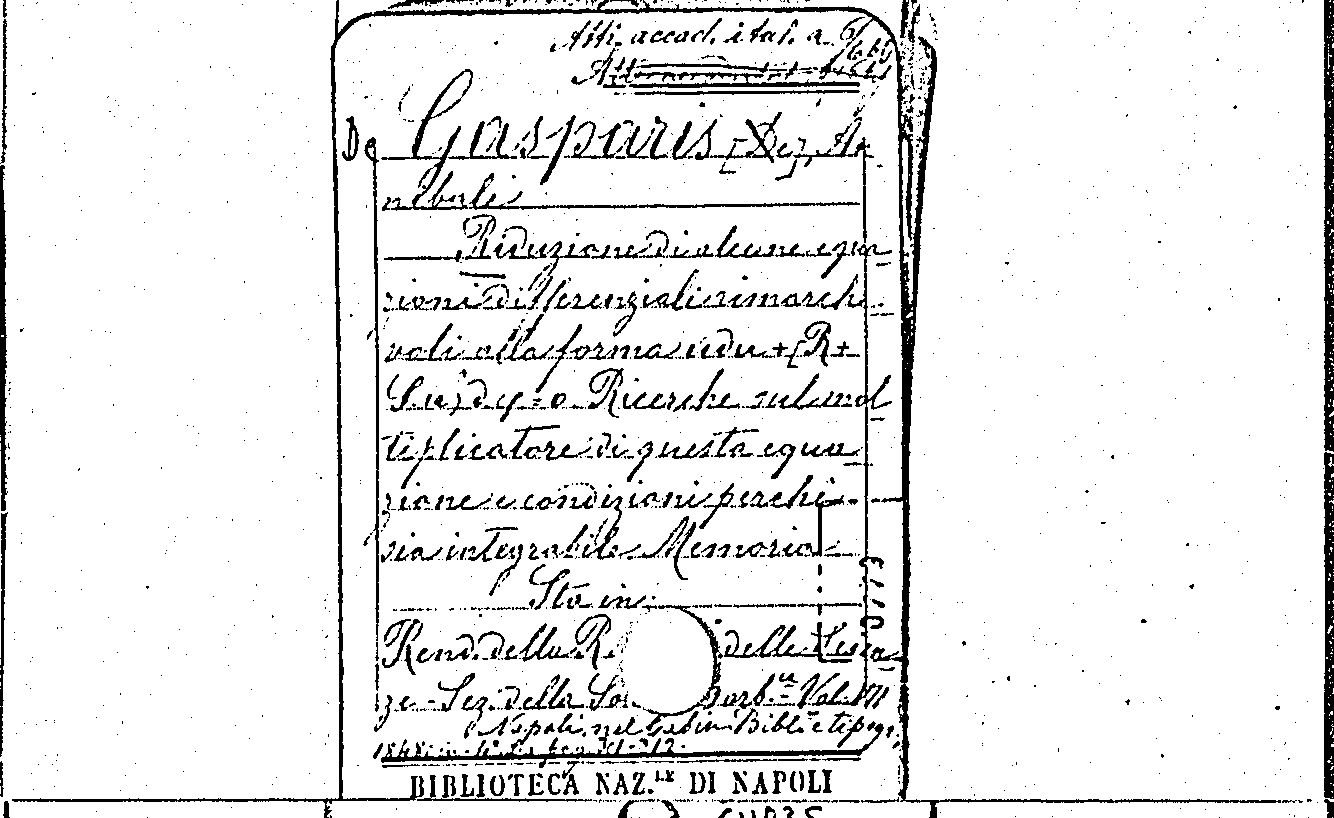 Atti accad. ital. a
De Gasparis [De], An
nibale
Riduzione di alcune equa
zioni differenziali rimarche
voli alla forma udu + (R +
Su) dy = 0 Ricerche sul mol
tiplicatore di questa equa
zione e condizioni perchè
sia integrabile Memoria
Sta in:
Rend. della R. delle Scien
ze - Sez. della So orb.ca Vol. VII
Napoli, nel Gabin. Bibl. e tipogr.
1848 in 4.°
BIBLIOTECA NAZ.LE DI NAPOLI